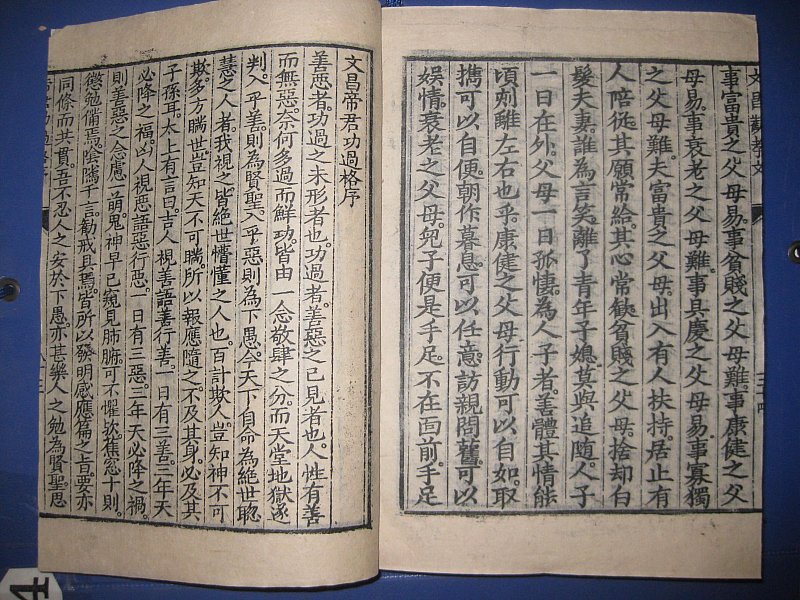 文昌勸孝文
事富貴之父母易。事貧賤之父母難。事康健之父
母易。事衰老之父母難。事具慶之父母易。事寡獨
之父母難。夫富貴之父母出入有人扶持。居止有
人陪從。其願常給。其心常歡。貧賤之父母。捨却白
髮夫妻。誰為言笑。離了青年子媳。莫與追隨。人子
一日在外。父母一日孤悽。為人子者。善體其情。能
頃刻離左右也乎。康健之父母。行動可以自如。取
携可以自便。朝作暮息。可以任意。訪親問舊。可以
娛情。衰老之父母。兒子便是手足。不在面前。手足
文昌帝君功過格序
善惡者。功過之未形者也。功過者。善惡之已見者也。人性有善
而無惡。奈何多過而鮮功。皆由一念敬肆之分。而天堂地獄遂
判。入乎善。則為賢聖。入乎惡則為下愚。今天下自命為絶世聪
慧之人者。我視之。皆絶世懵懂之人也。百計欺人。豈知神不可
欺。多方瞞世。豈知天不可瞞。所以報應隨之。不及其身。必及其
子孫耳。太上有言曰。吉人視善語善行善。一日有三善。三年天
必降之福。凶人視惡語惡行惡。一日有三惡。三年天必降之禍。
則善惡之念慮一萌。鬼神早已窺見肺腑。可不懼欤。蕉窓十則。
懲勉備焉。陰隲千言。勸戒具焉。皆所以發明感應篇之旨。要亦
同條而共貫。吾不忍人之安於下愚。亦甚樂人之勉為賢聖。思